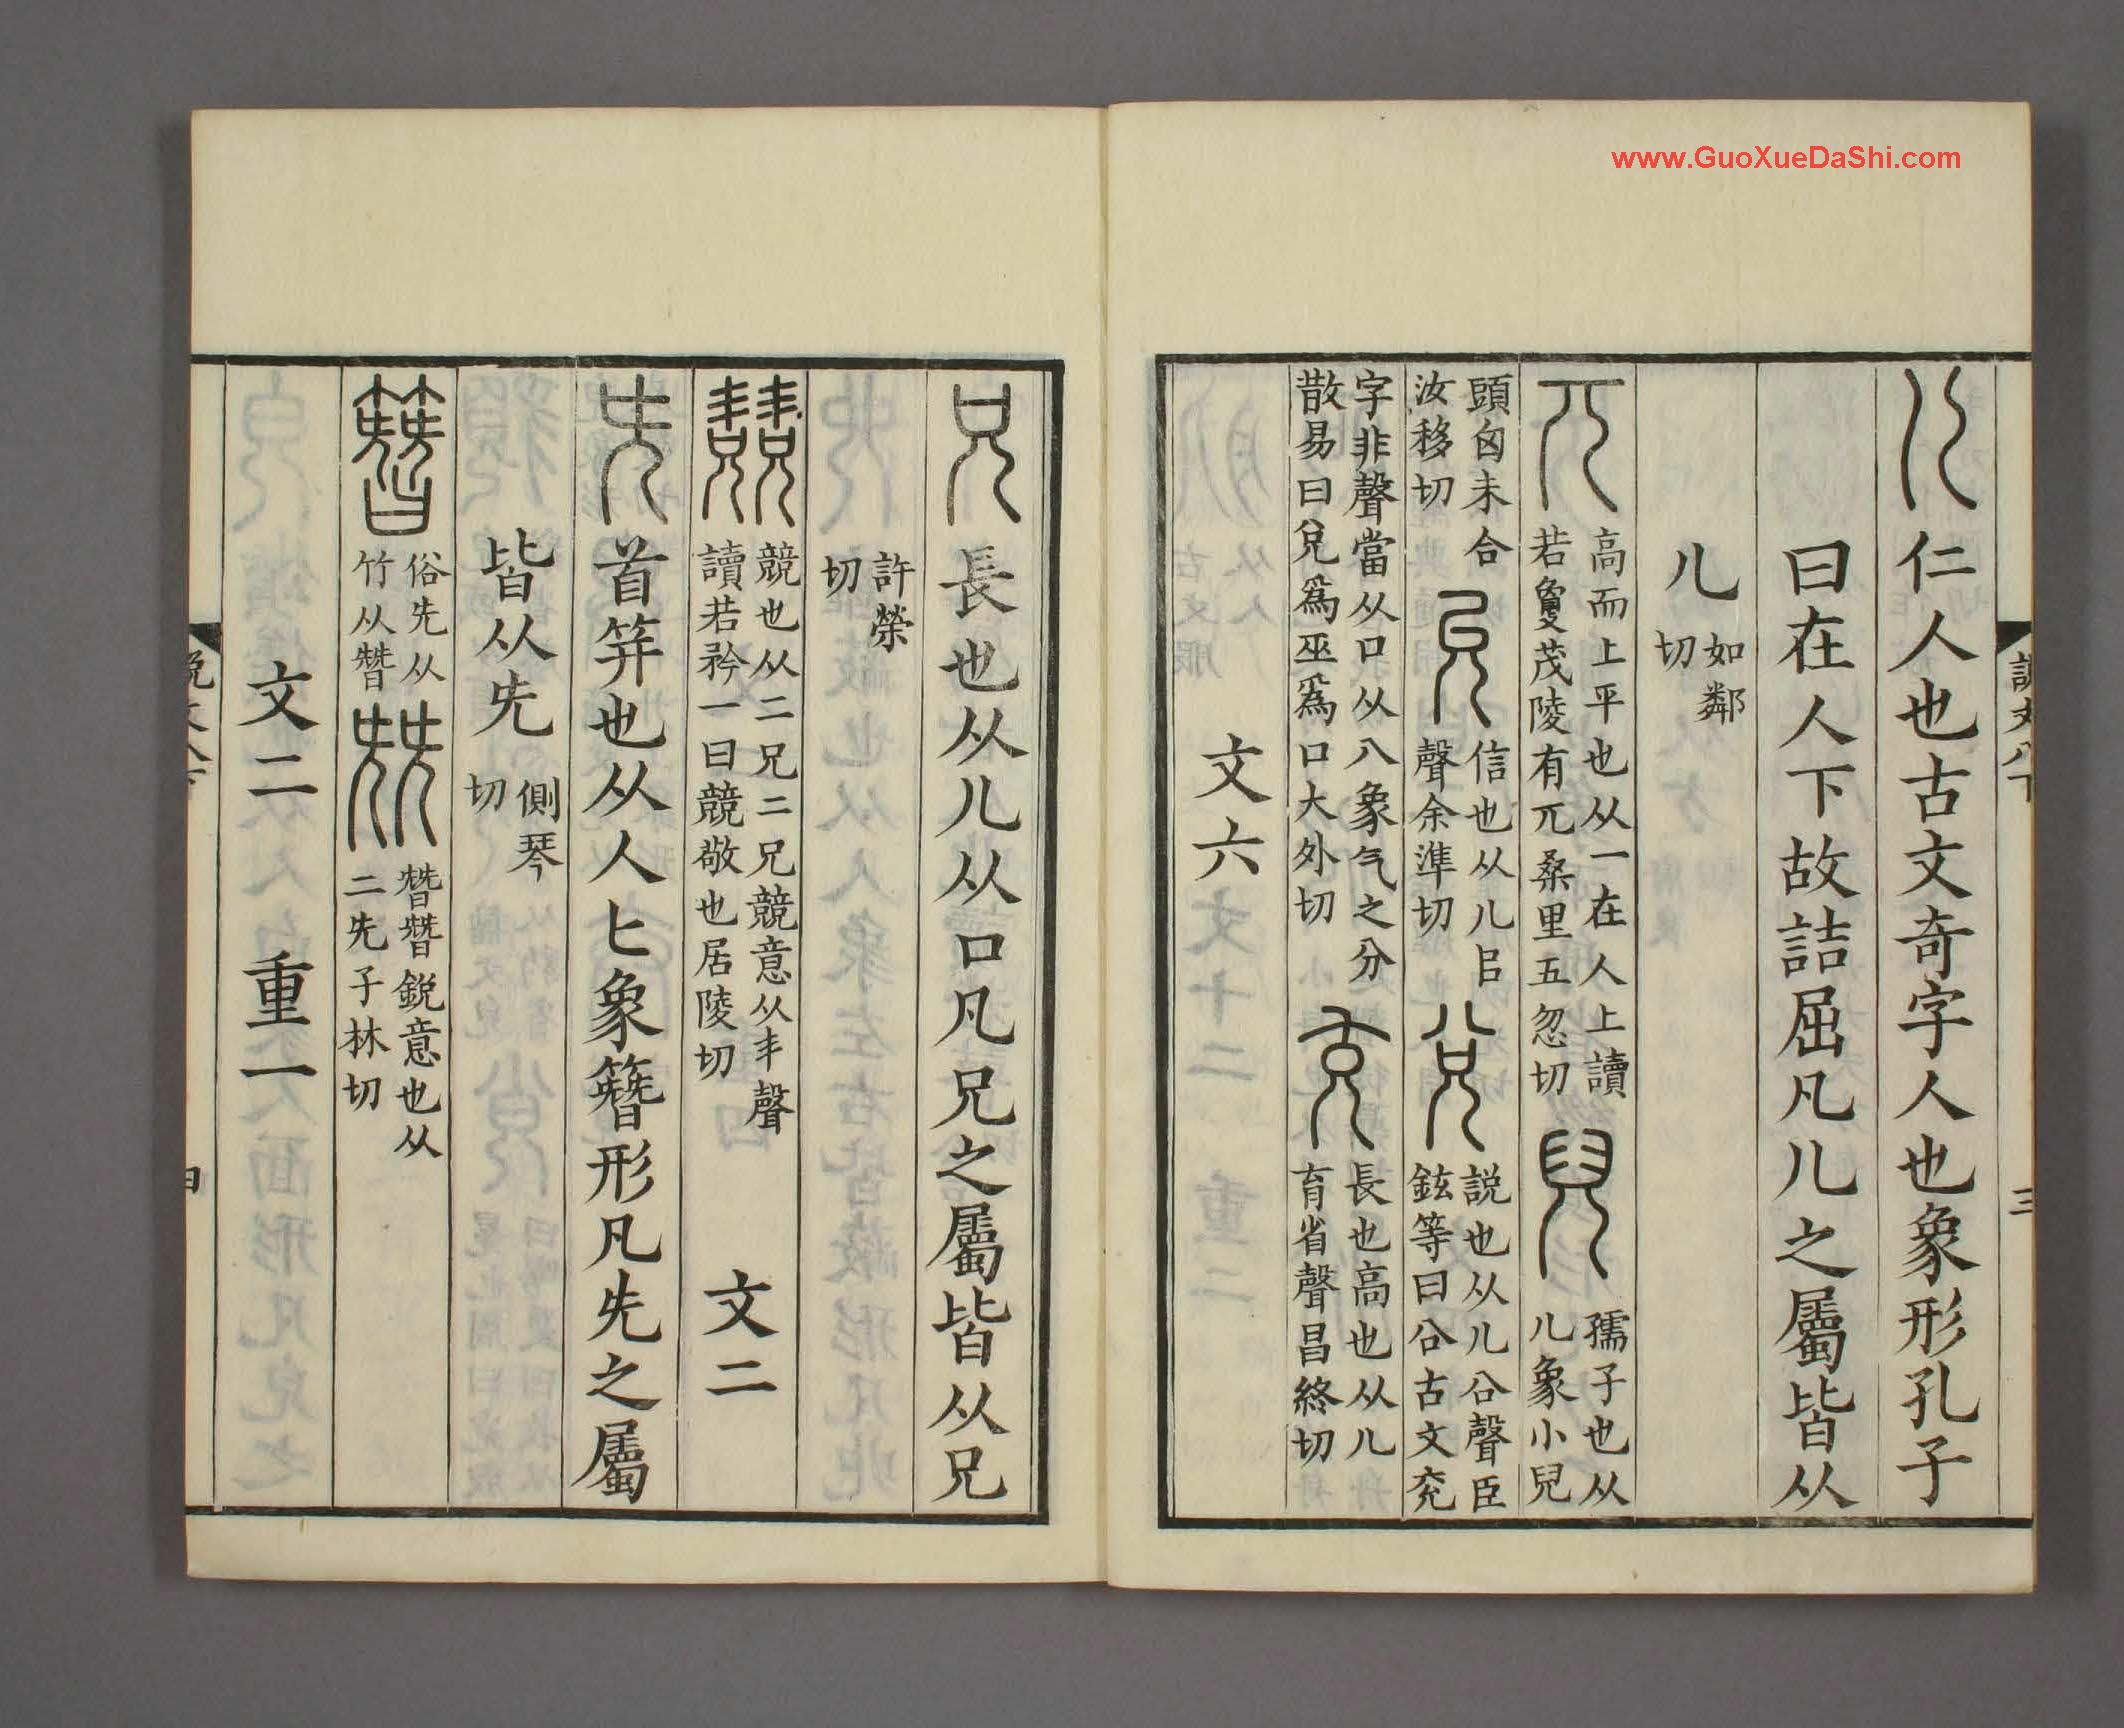 www.GuoXueDaShi.com
說文八下 三
儿 仁人也古文奇字人也象形孔子
曰在人下故詰屈凡儿之屬皆从
儿 如鄰切
兀 高而上平也从一在人上讀若敻茂陵有兀桑里五忽切 兒 孺子也从儿象小兒
頭囟未合汝移切 允 信也从儿㠯聲余準切 兌 說也从儿㕣聲臣鉉等曰㕣古文兖
字非聲當从口从八象气之分散易曰兌爲巫爲口大外切 充 長也高也从儿育省聲昌終切
文六
兄 長也从儿从口凡兄之屬皆从兄
許榮切
兢 競也从二兄二兄競意从丯聲讀若矜一曰兢敬也居陵切 文二
兂 首笄也从人匕象簪形凡兂之屬
皆从兂 側琴切
簪 俗兂从竹从朁 兓 朁朁銳意也从二兂子林切
文二 重一
說文八下 四